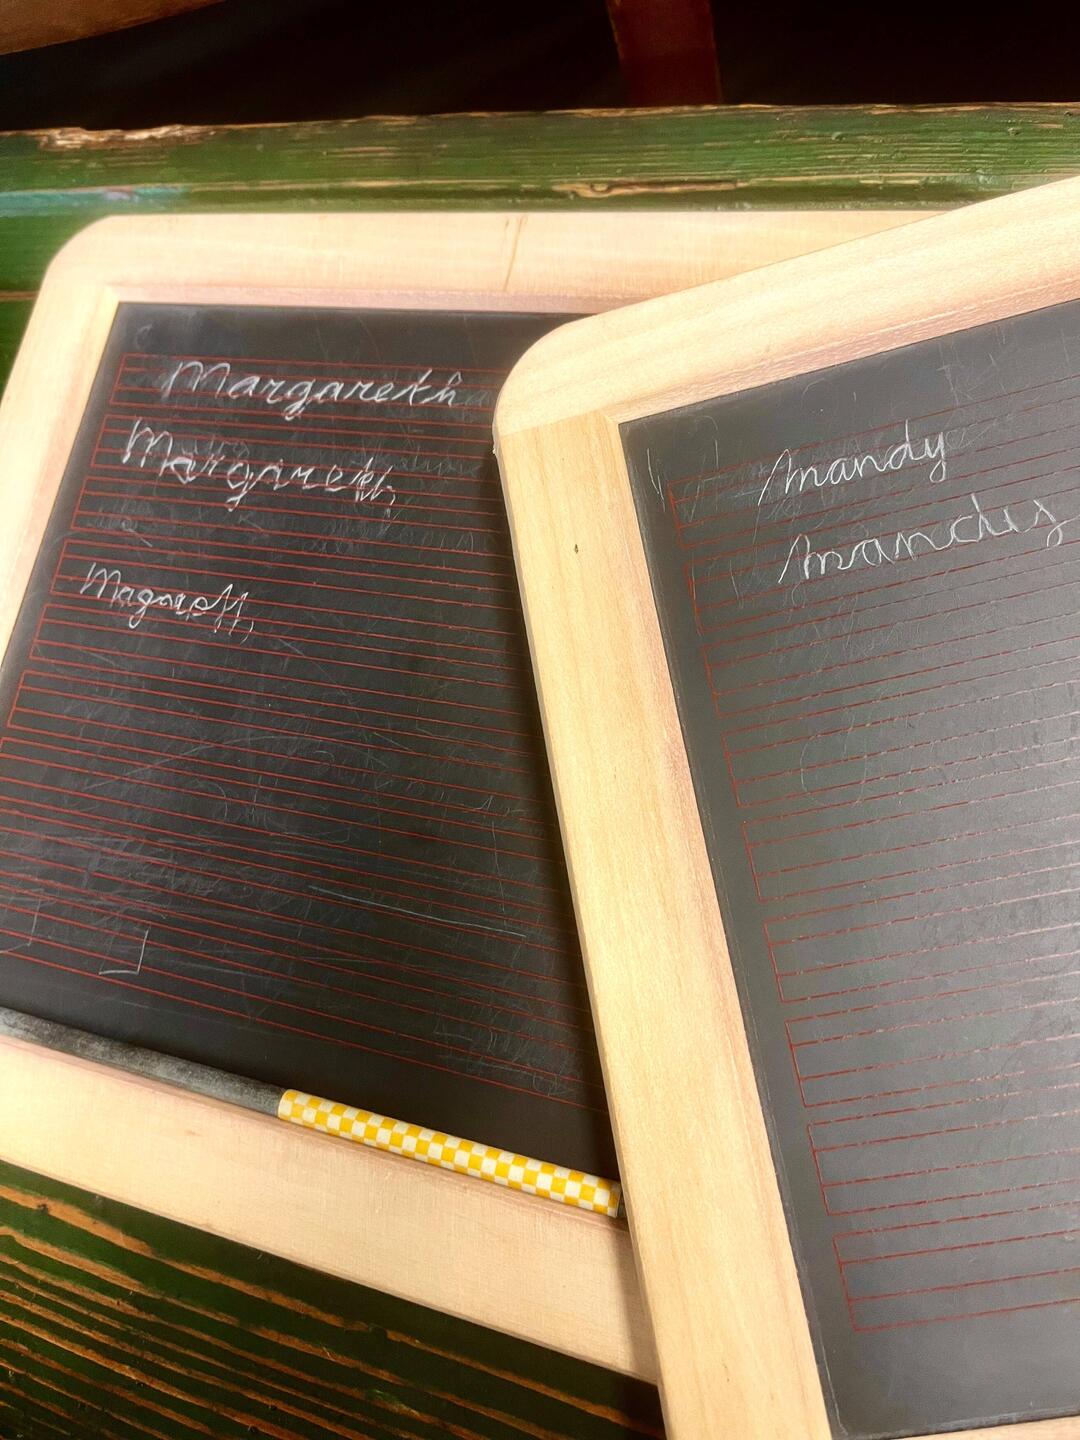 Margareth
Margareth
Magareth
Mandy
Mandy